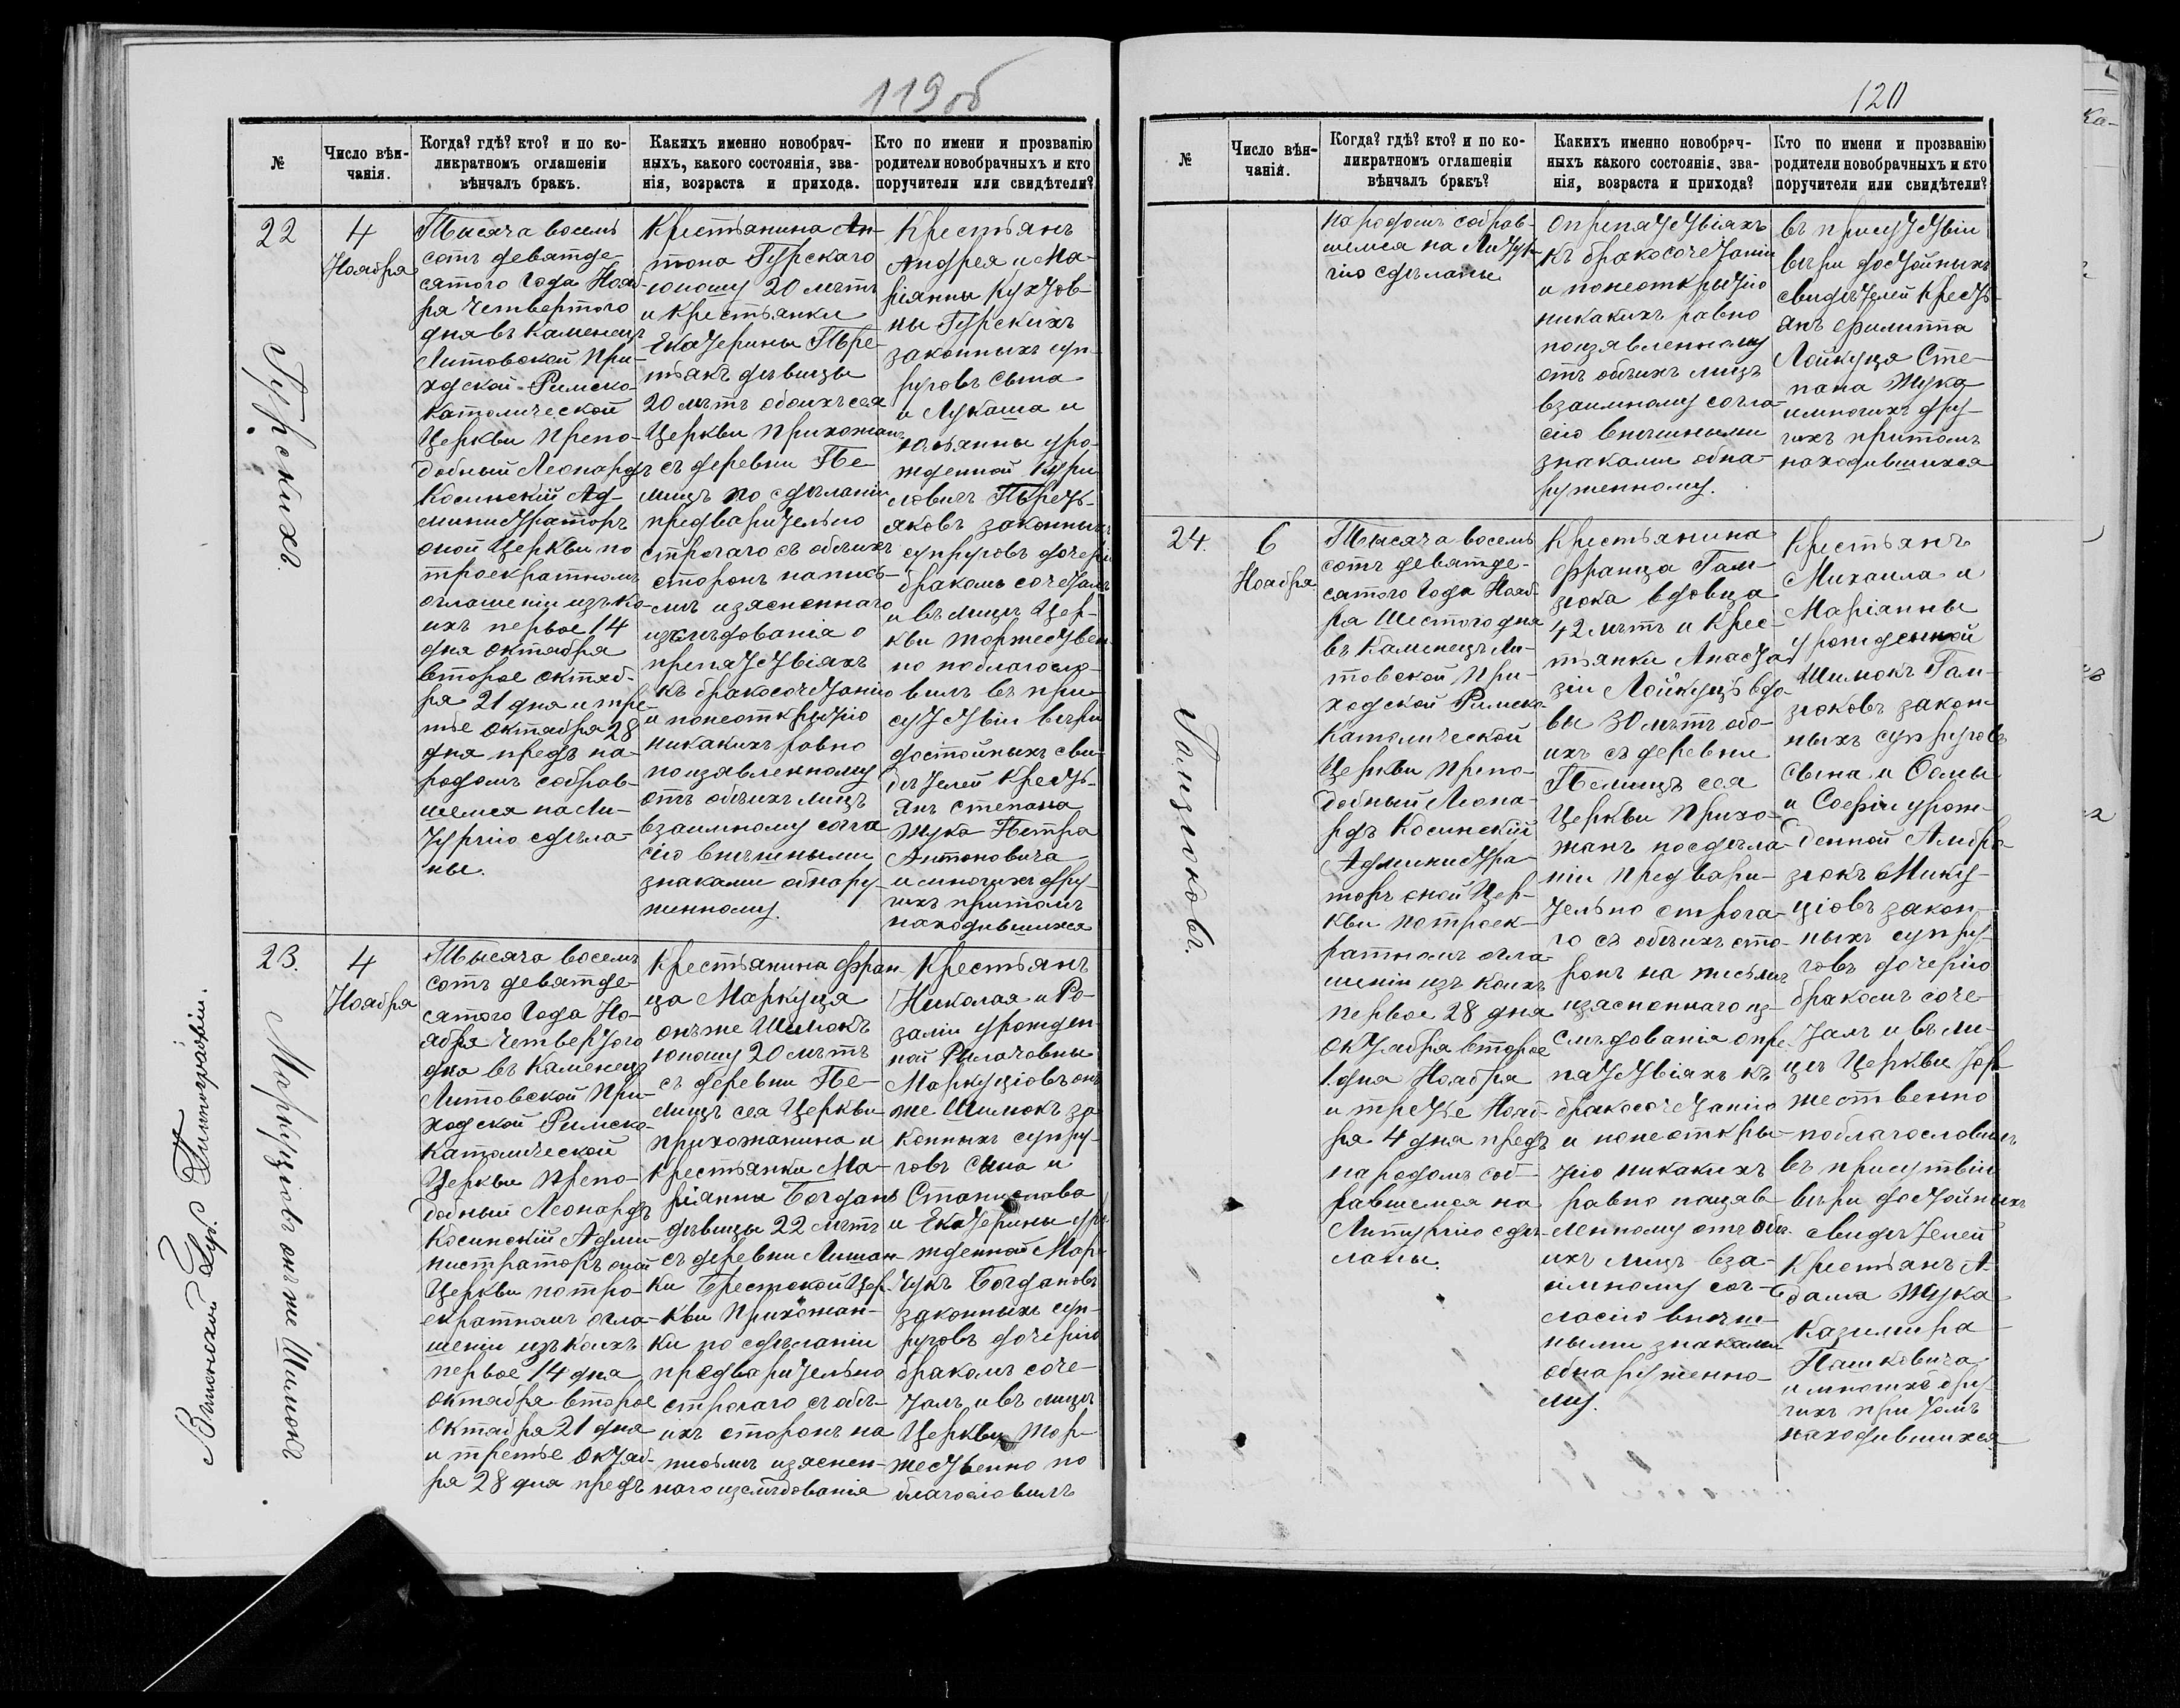 119 об
№
Число вѣн-
чанія.
Когда? гдѣ? кто? и по ко-
ликратномъ оглашеніи
вѣнчалъ бракъ.
Какихъ именно новобрач-
ныхъ, какого состоянія, зва-
нія, возраста и прихода.
Кто по имени и прозванію
родители новобрачныхъ и кто
поручители или свидѣтели?
22
Гурскихъ
4
Ноября
Тысяча восемь
сотъ девятде-
сятого Года Нояб-
ря Четвертого
дня въ Каменец
Литовской При-
ходской Римско-
Католической
Церкви Препо-
добный Леонардъ
Косинскій Ад-
министраторъ
оной Церкви по
троекратномъ
оглашеніи изъ ко-
ихъ первое 14
дня Октября
второе Октяб-
ря 21 дня и тре-
тье Октября 28
дня предъ на-
родомъ собрав-
шемся на Ли-
тургію сдѣла-
ны.
Крестьянина Ан-
тона Гурскаго
юношу 20 лѣтъ
и Крестьянки
Екатерины Пѣре-
тякъ дѣвицы
20 лѣтъ обоихъ сея
Церкви Прихожанъ
съ деревни Пе-
лищъ по сдѣланіи
предварительно
строгаго съ обѣихъ
сторонъ на пись-
мѣ изясненнаго
изслѣдованія о
препятствіяхъ
къ бракосочетанію
и понеоткрытію
никакихъ равно
поизявленному
отъ обѣихъ лицъ
взаимному согла-
сію внѣшными
знаками обнару-
женному.
Крестьянъ
Андрея и Ма-
ріянны Кухтов-
ны Гурскихъ
законныхъ суп-
руговъ Сына
и Лукаша и
Юльянны уро-
жденной Кири
ловичъ Перетя-
яковъ законныхъ
супруговъ дочерію
бракомъ сочеталъ
и въ лицѣ Цер-
кви торжествен-
но поблагосло-
вилъ въ при-
сутствіи вѣри
достойныхъ сви-
дѣтелей Кресть-
янъ Степана
Жука Петра
Антоновича
и многихъ дру-
гихъ притомъ
находившихся
23.
Маркуціовъ онъ же Шимокъ
4
Ноября
Тысяча восемь
сотъ девятде-
сятого Года Но-
ября Четвертого
дня въ Каменец
Литовской При-
ходской Римско-
Католической
Церкви Препо-
добный Леонардъ
Косинскій Адми-
нистраторъ оной
Церкви потро-
екратномъ огла-
шеніи изъ коихъ
первое 14 дня
Октября второе
Октября 21 дня
и третье Октяб-
ря 28 дня предъ
Крестьянина Фран-
ца Маркуця
онъ же Шимокъ
юношу 20 лѣтъ
съ деревни Пе-
лищъ сея Церкви
прихожанина и
Крестьянки Ма-
ріянны Богданъ
дѣвицы 22 лѣтъ
съ деревни Лишан-
ки Брестской Цер-
кви Прихожан-
ки по сдѣланіи
предварительно
строгаго съ обѣ-
ихъ сторонъ на
письмѣ изяснен-
наго изслѣдованія
Крестьянъ
Николая и Ро-
заліи урожден-
ной
Маркуціовъ онъ
же Шимокъ за
конныхъ супру-
говъ Сына и
Станислава
и Екатерины уро
жденной Мар-
чукъ Богдановъ
законныхъ суп-
руговъ дочерію
бракомъ соче-
талъ и въ лицѣ
Церкви Тор-
жественно по
благословилъ
Виленской Губ. Типографіи.
120
№
Число вѣн-
чанія.
Когда? гдѣ? кто? и по ко-
ликратномъ оглашеніи
вѣнчалъ бракъ?
Какихъ именно новобрач-
ныхъ какого состоянія, зва-
нія, возраста и прихода?
Кто по имени и прозванію
родители новобрачныхъ и кто
поручители или свидѣтели?
народомъ собрав-
шемся на Литур-
гію сдѣланы
опрепятствіяхъ
къ бракосочетанію
и понеоткрытію
никакихъ равно
поизявленному
отъ обѣихъ лицъ
взаимному согла-
сію внѣшными
знаками обна-
руженному.
въ присутствіи
вѣри достойныхъ
свидѣтелей Кресть-
янъ Филиппа
Лойкуця Сте-
пана Жука
имногихъ дру-
гихъ притомъ
находившихся
24.
Гамзюковъ.
6
Ноября
Тысяча восемь
сотъ девятде-
сятого Года Нояб-
ря Шестого дня
въ Каменецъ Ли-
товской При-
ходской Римско-
Католической
Церкви Препо-
добный Леона-
рдъ Косинскій
Администра-
торъ оной Цер-
кви потроек-
ратномъ огла-
шеніи изъ коихъ
первое 28 дня
Октября второе
1 дня Ноября
и третье Нояб-
ря 4 дня предъ
народомъ соб-
равшемся на
Литургію сдѣ-
ланы.
Крестьянина
Франца Гам-
зюка вдовца
42 лѣтъ и Крес-
тьянки Анаста
зіи Лойкуць вдо-
вы 30 лѣтъ обо-
ихъ съ деревни
Пелищъ сея
Церкви Прихо-
жанъ посдѣла-
ніи предвари-
тельно строга-
го съ обѣихъ сто-
ронъ на письмѣ
изясненнаго из-
слѣдованія опре
пятствіяхъ къ
бракосочетанію
и понеоткры-
тію никакихъ
равно поизяв-
ленному отъ обѣ-
ихъ лицъ вза-
имному сог-
ласію внѣш-
ными знаками
обнаруженно-
му.
Крестьянъ
Михаила и
Маріанны
урожденной
Шимокъ Гам-
зюковъ закон-
ныхъ супруговъ
Сына и Фомы
и Софіи урож-
денной Амбро-
зюкъ Мику-
ціовъ закон-
ныхъ супру-
говъ дочерію
бракомъ соче-
талъ и въ ли-
цѣ Церкви Тор-
жественно
поблагословилъ
въ присутвіи
вѣри достойныхъ
свидѣтелей
Крестьянъ А-
дама Жука
Казимира
Пашковича
и многихъ дру-
гихъ притомъ
находившихся